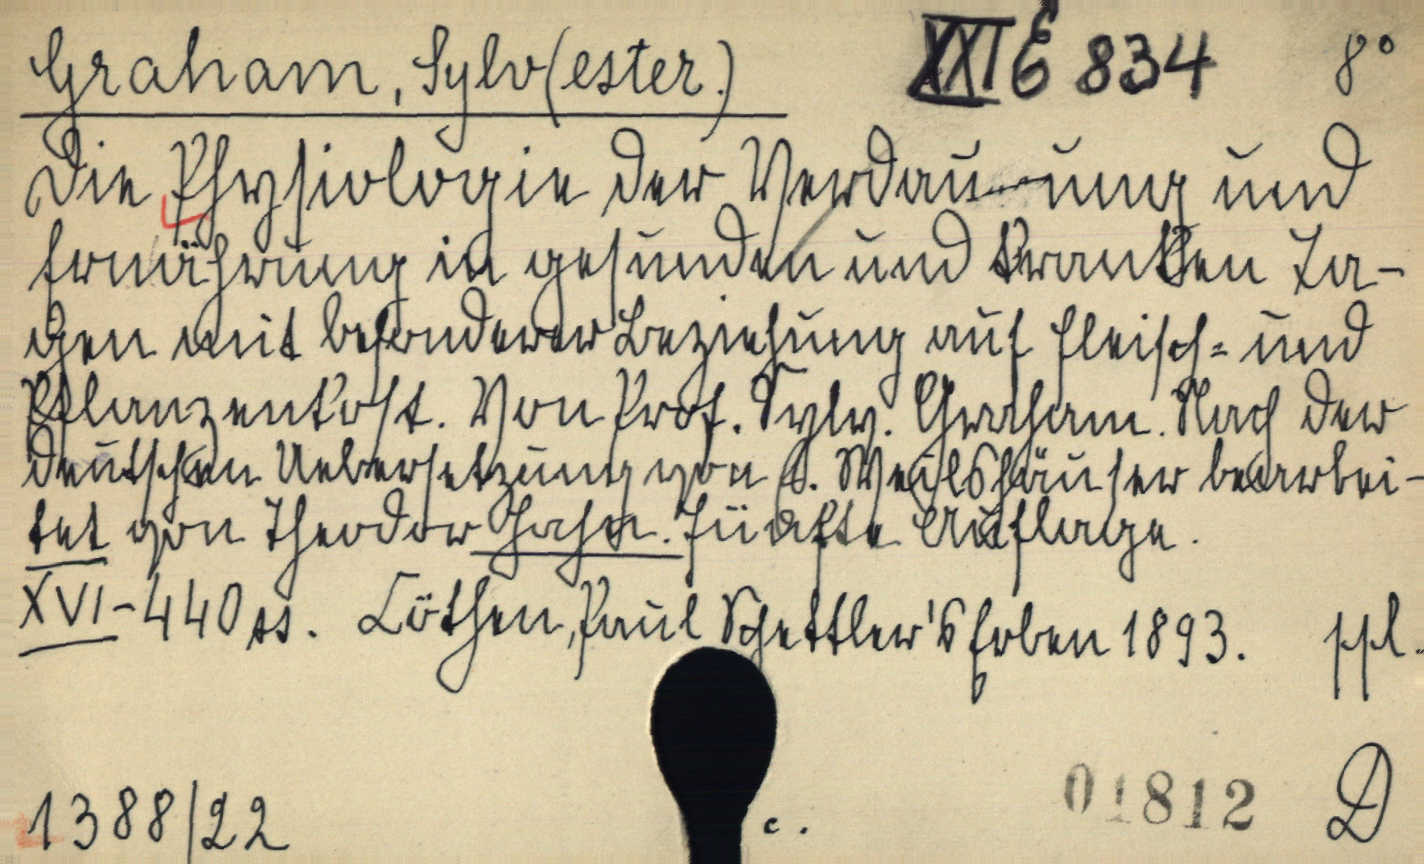 Graham, Sylv(ester.) XXI E 834 8°
Die Physiologie der Verdauung und
Ernährung in gesunden und kranken Ta-
gen mit besonderer Beziehung auf Fleisch- und
Pflanzenkost. Von Prof. Sylv. Graham. Nach der
deutschen Uebersetzung von E. Weilshäuser bearbei-
tet von Theodor Hahn. Fünfte Auflage.
XVI-440 ss. Cöthen, Paul Schettler's Erben 1893. ppl.
1388/22 c. 01812 D